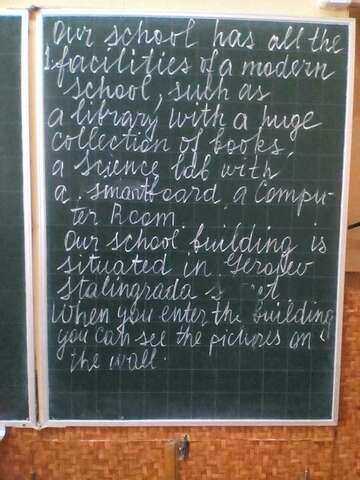 Our school has all the
1. facilities of a modern
school, such as
a library with a huge
collection of books,
a science lab with
a smartboard, a Compu-
ter Room.
Our school building is
situated in Geroyev
Stalingrada
When you enter the building
you can see the pictures on
the wall.